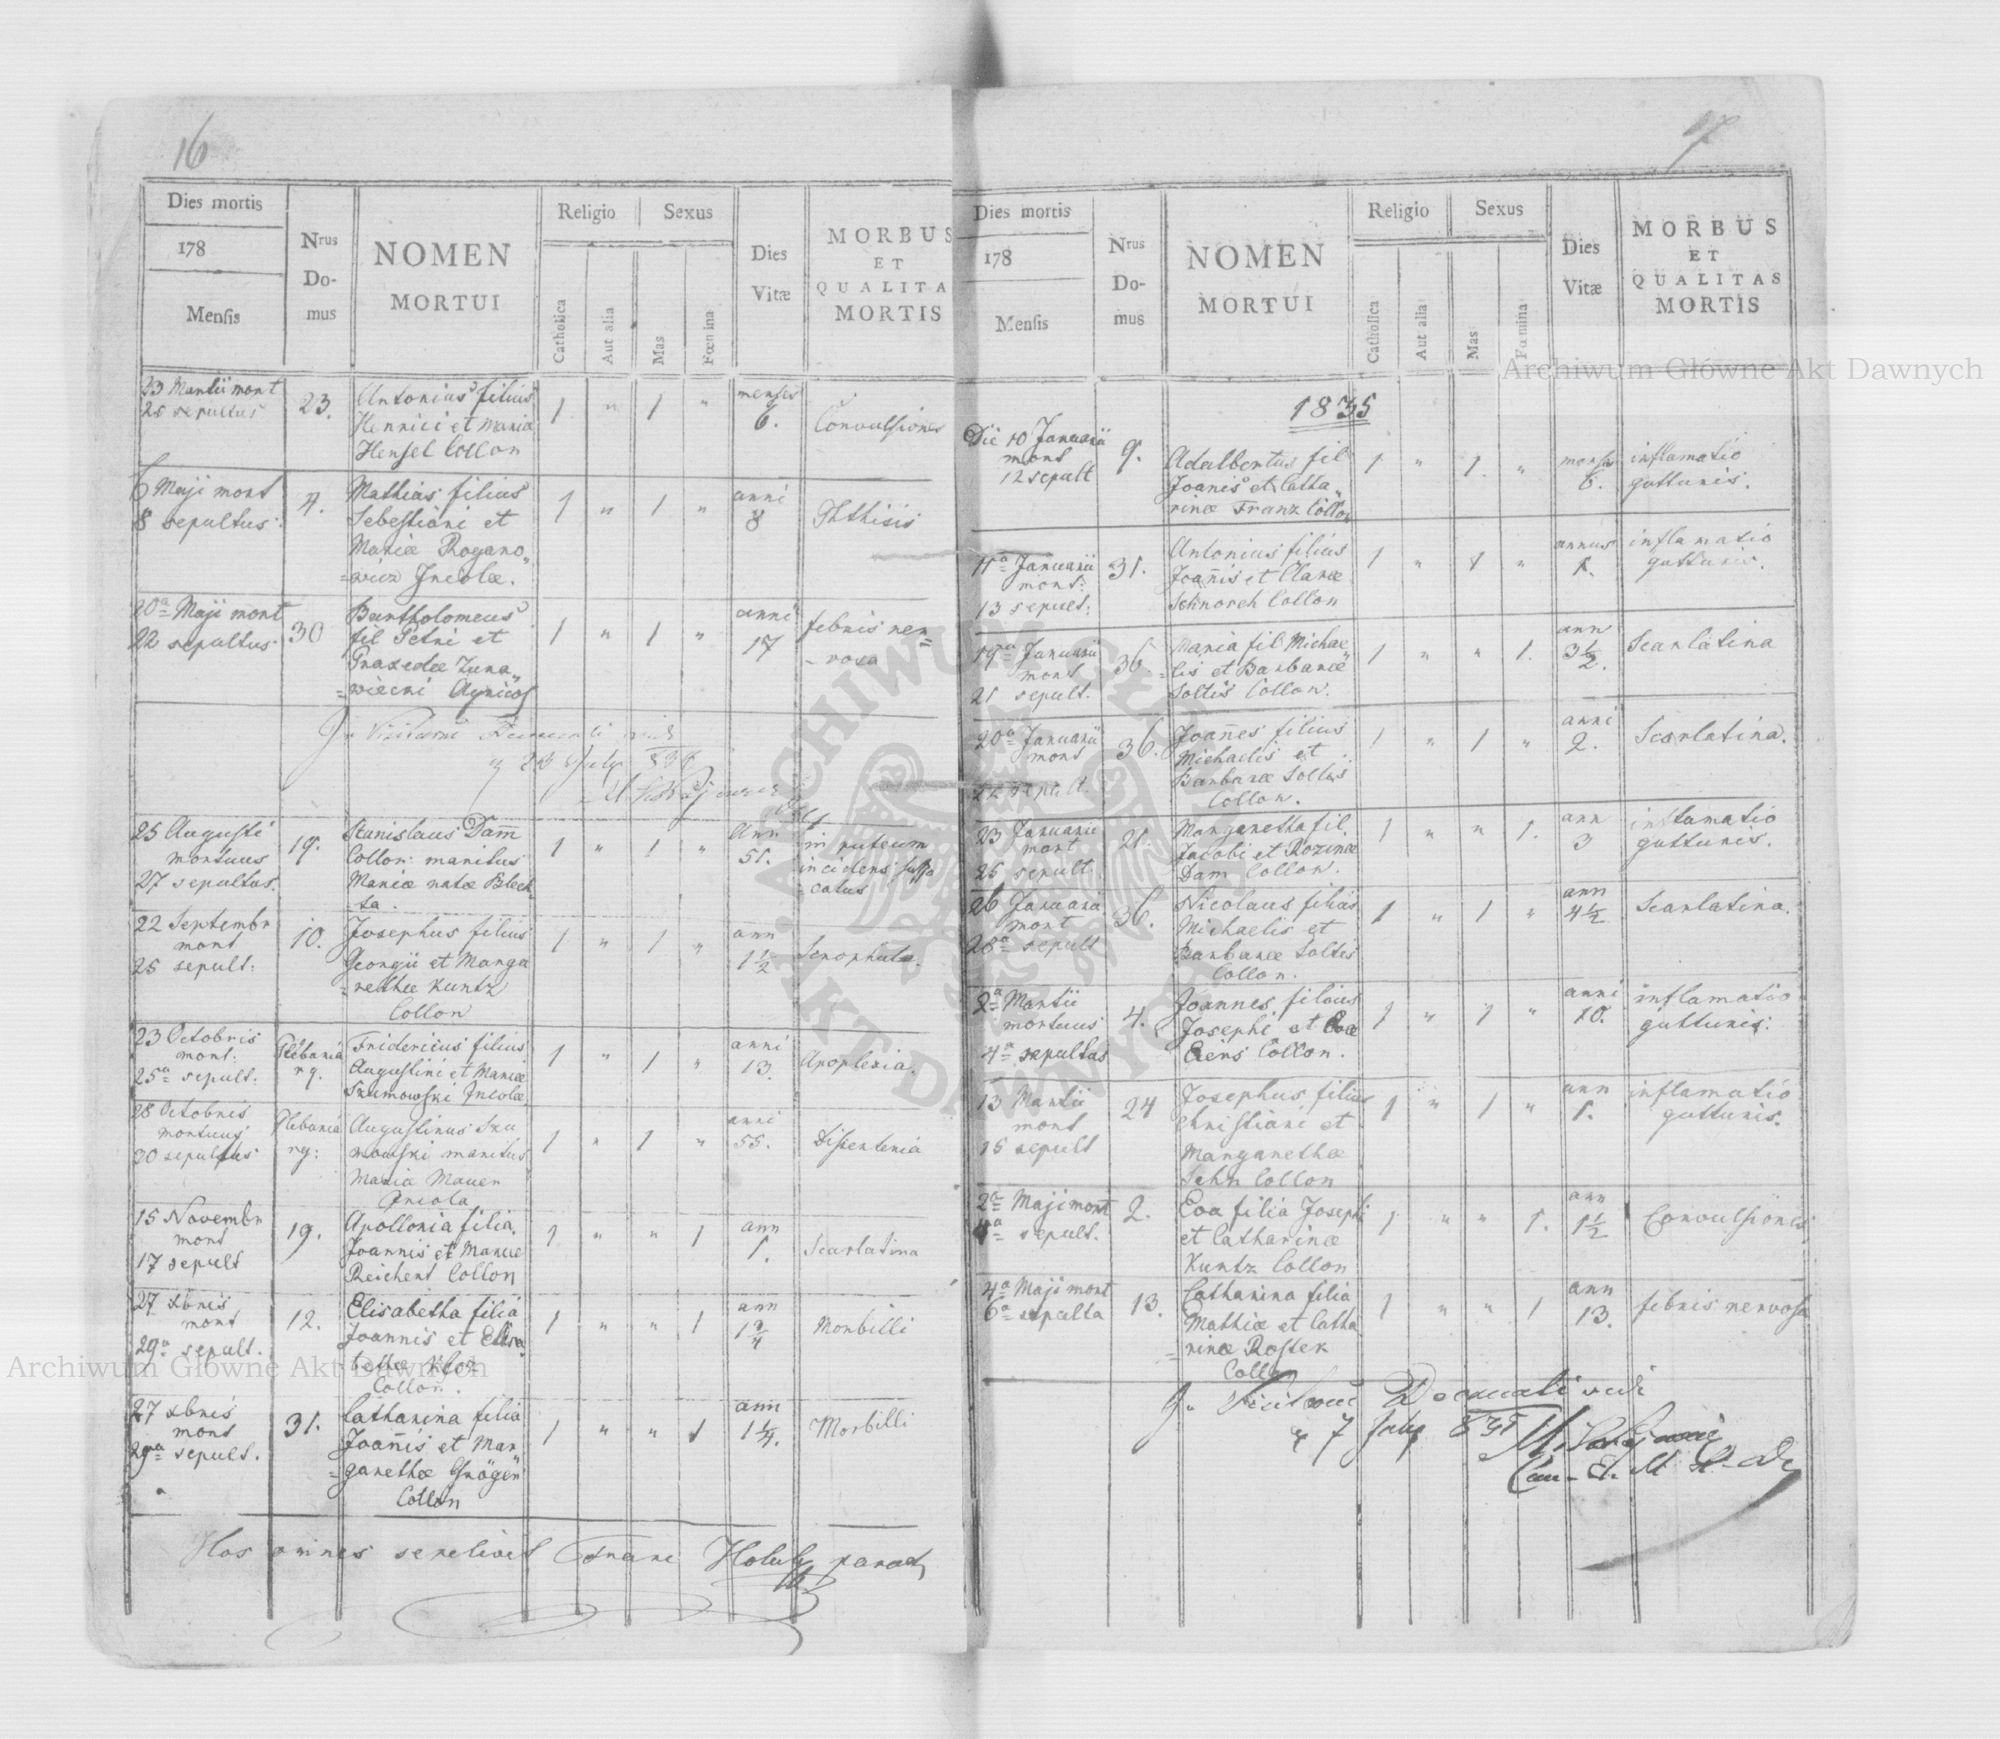 16
Dies mortis
178
Mensis
Nrus Do-mus
NOMEN MORTUI
Religio
Catholica
Aut alia
Sexus
Mas
Fœmina
Dies Vitæ
MORBUS ET QUALITA MORTIS
23 Martii mort
25 sepultus
23.
Antonius filius
Henrici et Maria
Hensel Collon
1 " 1 "
menses
6.
Convulsiones
6 Maji mort
8 sepultus.
4.
Mathias filius
Sebestiani et
Mariæ Rogano„
=wicz Incolæ.
1 " 1 "
anni
8
Phthisis
20a Maji mort
22 sepultus
30
Bartholomeus
fil Petri et
Praxedæ Zura„
=wiecki Agricos
1 " 1 "
anni
17
febris ner=
-vosa
25 Augusti
mortuus
27 sepultus.
19.
Stanislaus Dam̄
Collon: maritus
Mariæ natæ Blech
-ta.
1 " 1 "
Ann
51.
in puteum
incidens suffo
-catus
22 Septembr
mort
25 sepult:
10.
Josephus filius
Georgii et Marga
-rethæ Kuntz
Collon
1 " 1 "
ann
1 1/2
Scrophula.
23 Octobris
mort.
25a sepult.
Plebania
rg.
Fridericus filius
Augustini et Mariæ
Szumowski Incolæ.
1 " 1 "
anni
13.
Apoplexia.
28 Octobris
mortuus
30 sepultus
Plebania
rg:
Augustinus Szu
mowski maritus
Maria Mauer
Incola
1 " 1 "
anni
55.
Dissenteria
15 Novembr
mort
17 sepult
19.
Apollonia filia
Joannis et Mariæ
Reichert Collon
1 " " 1
ann
1.
Scarlatina
27 xbris
mort
29a sepult.
12.
Elisabetha filia
Joannis et Elisa
bethæ
Collon.
1 " " 1
ann
1 3/4
Morbilli
27 xbris
mort
29a sepult.
31.
Catharina filia
Joan̄is et Mar
=garethæ Gröger
Collon
1 " " 1
ann
1 1/4.
Morbilli
Hos omnes sepelivit Franc Holub paroch
17
Dies mortis
178
Mensis
Nrus Do-mus
NOMEN MORTUI
Religio
Catholica
Aut alia
Sexus
Mas
Fœmina
Dies Vitæ
MORBUS ET QUALITAS MORTIS
1835
Die 10 Januarii
mort
12 sepult
9.
Adalbertus fil
Joanis et Catha„
rinæ Franz Collon
1 " 1. "
menses
6.
inflamatio
gutturis.
11a Januarii
mort:
13 sepult:
31.
Antonius filius
Joan̄is et Claræ
Schnorch Collon
1 " 1 "
annus
1.
inflamatio
gutturis.
19a Januarii
mort
21 sepult.
36.
Maria fil Michae„
=lis et Barbaræ
Soltis Collon.
1 " " 1.
ann
3 1/2.
Scarlatina
20a Januarii
mort
22 sepult.
36.
Joan̄es filius
Michaelis et
Barbaræ Soltis
Collon.
1 " 1 "
anni
2.
Scarlatina.
23 Januarii
mort
25 sepult.
21.
Margaretha fil.
Jacobi et Rozinæ
Dam Collon.
1 " " 1.
ann
3
inflamatio
gutturis.
26 Januarii
mort
28a sepult
36.
Nicolaus filius
Michaelis et
Barbaræ Soltis
Collon.
1 " 1 "
ann
4 1/2
Scarlatina.
2a Martii
mortuus
4a sepultus
4.
Joannes filius
Josephi et Evæ
Collon.
1 " 1 "
anni
10.
inflamatio
gutturis:
13 Martii
mort
15 sepult
24
Josephus filius
Christiani et
Margarethæ
Sehn Collon
1 " 1 "
ann
1.
inflamatio
gutturis.
2a Maji mort
4a sepult.
2.
Eva filia Josephi
et Catharinæ
Kuntz Collon
1 " " 1.
ann
1 1/2
Convulsiones
4a Maji mort
6a sepulta
13.
Catharina filia
Mathiæ et Catha
=rinæ Rostek
Collon
1 " " 1
ann
13.
febris nervosa
7 July 835
Archiwum Główne Akt Dawnych
Archiwum Główne Akt Dawnych
ARCHIWUM GŁÓWNE AKT DAWNYCH